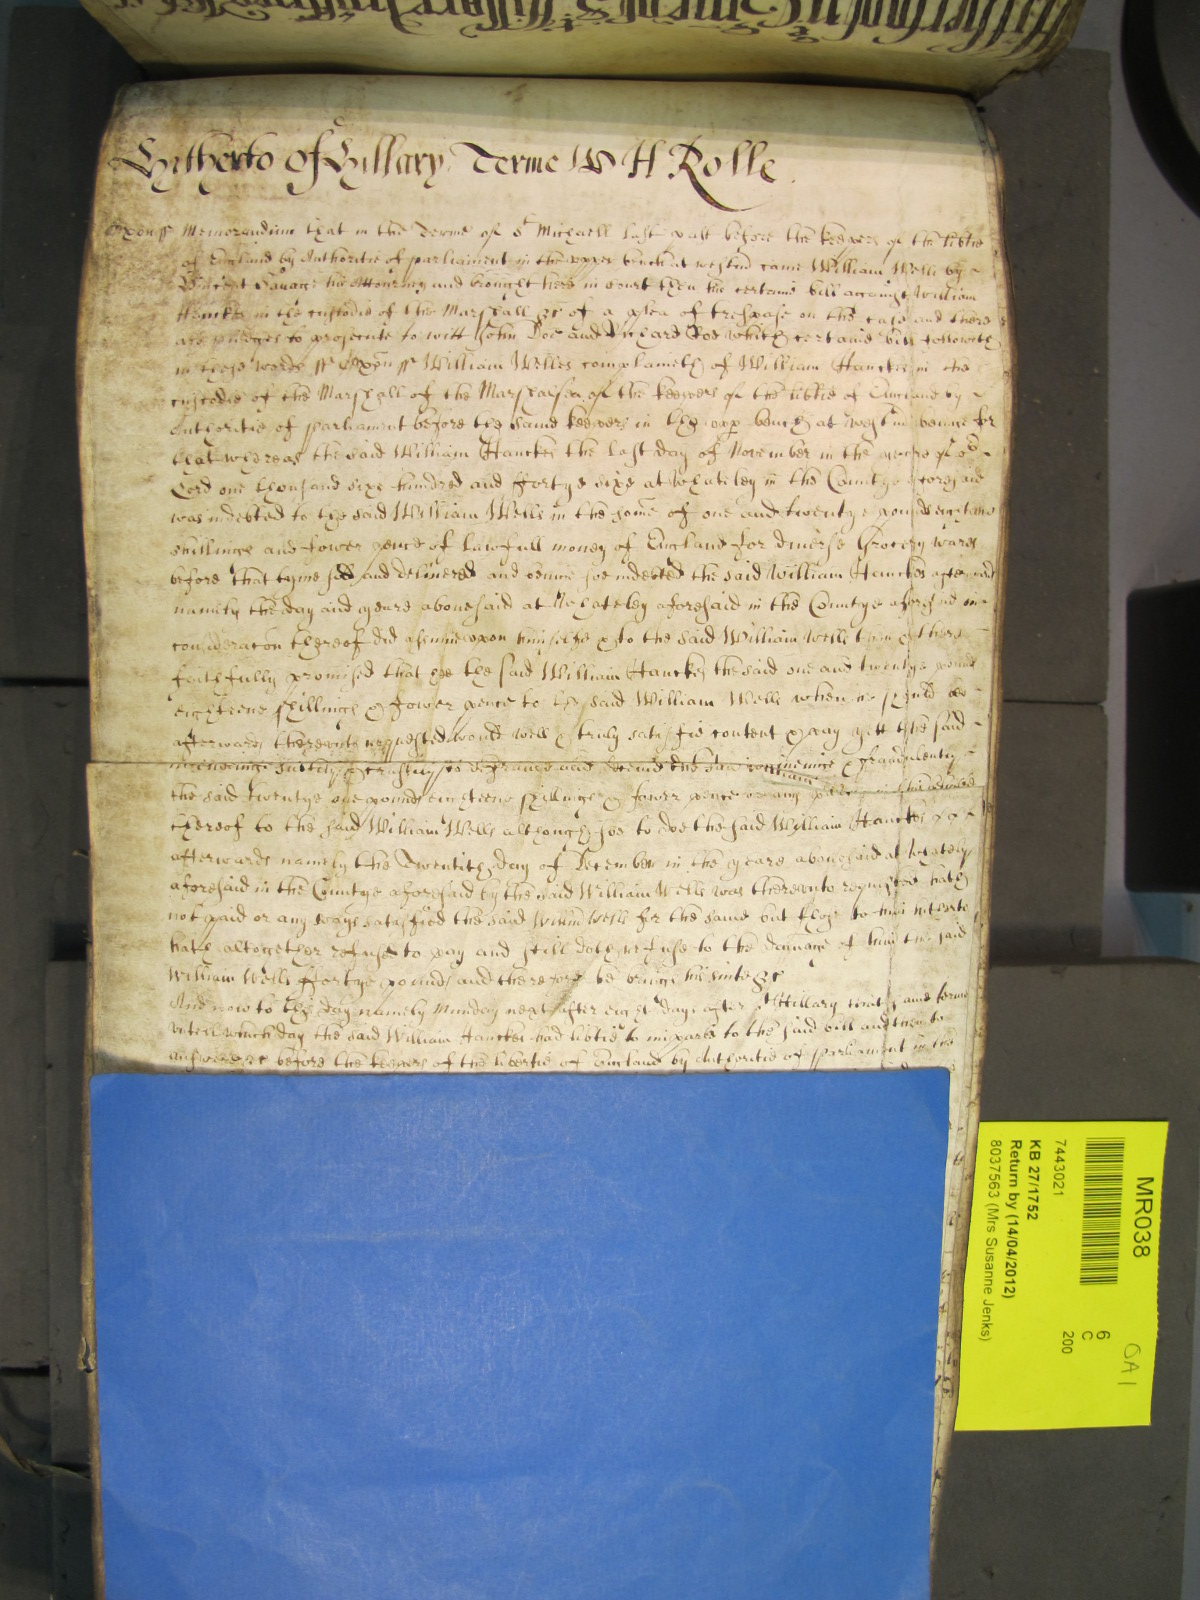 Hitherto of Hillary Terme W H Rolle
Oxon ss Memorandum that in the Terme of St Michaell last past before the keepers of the libtie
of England by Authoritie of parliament in the upper bench at westm came William Wells by
his Attourney and brought here in court then his certaine bill against William
Hanckes in the custodie of the Marshall &c of a plea of trespase on the case and there
are pledges to prosecute to witt John Doe and Richard Roe which certaine bill followeth
in these words ss Oxon ss William Wells complaineth of William Hanckes in the
custodie of the Marshall of the Marshalsea of the keepers of the libtie of England by
Authoritie of parliament before the same keepers in the upp bench at westm beinge for
that whereas the said William Hanckes the last day of November in the yeare of or
Lord one thousand sixe hundred and fortye sixe at Whateley in the Countye aforesaid
was indebted to the said William Wells in the some of one and twentye pounds eighteene
shillings and fower pence of lawfull money of England for diverse Grocery wares
before that tyme sold and delivered and beinge soe indebted the said William Hanckes afterwards
namely the day and yeare abovesaid at Whateley aforesaid in the Countye aforesaid in
consideracon thereof did assume upon himselfe & to the said William Wells then & there
faithfully promised that he the said William Hanckes the said one and twentye pounds
eighteene shillings & fower pence to the said William Wells when he should be
afterwards thereunto requested would well & truly satisfie content & pay yett the said
& fraudulently
the said twentye one pounds eighteene shillings & fower pence or any
thereof to the said William Wells although hee to doe the said William Hanckes
afterwards namely the Twentith day of December in the yeare abovesaid at Whately
aforesaid in the Countye aforesaid by the said William Wells was thereunto requested hath
not paid or any wayes satisfied the said Willm Wells for the same but those to him hitherto
hath altogether refused to pay and still doth refuse to the damage of him the said
William Wells fortye pounds and therefore he brings his suite &c
And now to this day namely Munday next after eight dayes after St Hillary that same terme
untill which day the said William Hanckes had libtie to imparle to the said bill and then to
answere &c before the keepers of the libertie of England by Authoritie of parliament in the
MR038
7443021
KB 27/1752
Return by (14/04/2012)
8037563 (Mrs Susanne Jenks)
6
C
200